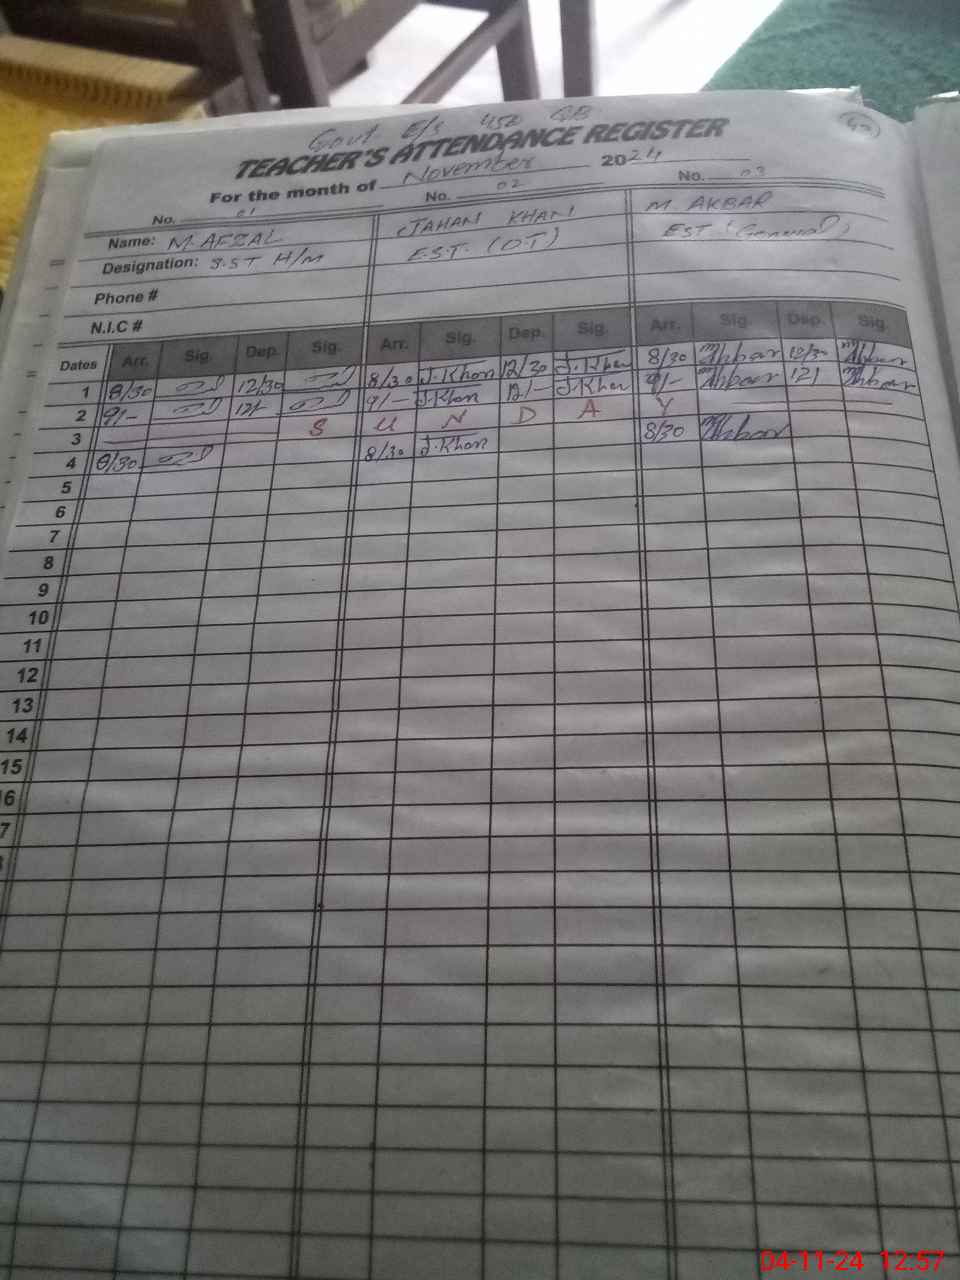 Govt E/s 452 GB
TEACHER'S ATTENDANCE REGISTER
For the month of November 2024
No. 01 No. 02 No. 03
Name: M. AFZAL JAHAN KHAN M. AKBAR
Designation: S.ST H/M E.S.T. (D.T) EST (General)
Phone #
N.I.C #
Dates Arr. Sig. Dep. Sig. Arr. Sig. Dep. Sig. Arr. Sig. Dep. Sig.
1 8/30 12/30 8/30 J.Khan 12/30 J.Khan 8/30 MAkbar 12/30 MAkbar
2 9/- 12/- 9/- J.Khan 12/- J.Khan 9/- MAkbar 12/ MAkbar
3 S U N D A Y
4 8/30 8/30 J.Khan 8/30 MAkbar
5
6
7
8
9
10
11
12
13
14
15
6
7
04-11-24 12:57